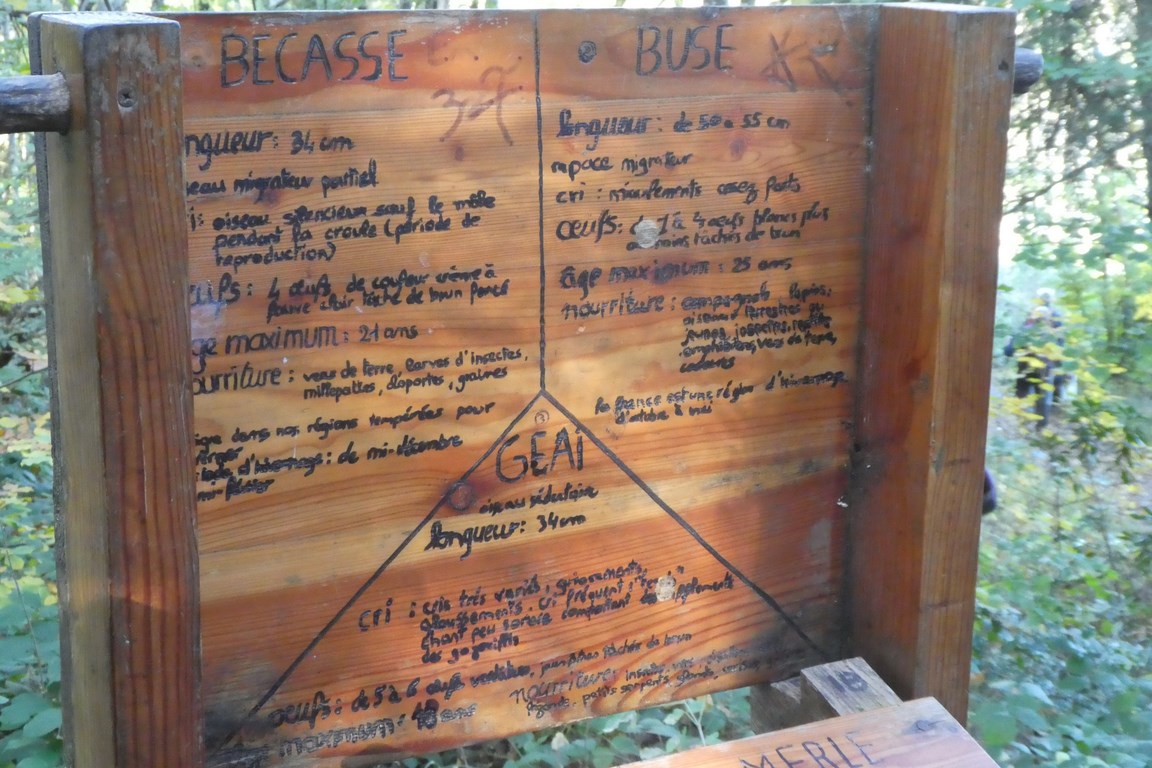 BECASSE
ngueur: 34 cm
eau migrateur partiel
i: oiseau silencieux sauf le mâle
pendant la croule (période de
reproduction)
eufs: 4 œufs de couleur crème à
fauve clair tâché de brun foncé
ge maximum: 21 ans
ourriture: vers de terre, larves d'insectes,
millepattes, cloportes, graines
igre dans nos régions tempérées pour
d'hivernage: de mi-décembre
mi-février
BUSE
longueur: de 50 à 55 cm
rapace migrateur
cri: miaulements assez forts
œufs: 1 à 4 œufs blancs plus
moins tâchés de brun
âge maximum: 25 ans
nourriture: campagnols, lapins,
oiseaux terrestres ou
jeunes, insectes, reptiles
amphibiens, vers de terre,
cadavres
la france est une région d'hivernage
d'octobre à mai
GEAI
oiseau sédentaire
longueur: 34cm
cri: cris très variés, grincements,
gloussements. Cri fréquent:
Chant peu sonore comportant des sifflements
des gargouillis
oeufs: de 5 à 6 œufs verdâtres, jaunâtres tâchés de brun
maximum: 18 ans
nourriture: insectes, vers,
petits serpents, glands,
MERLE